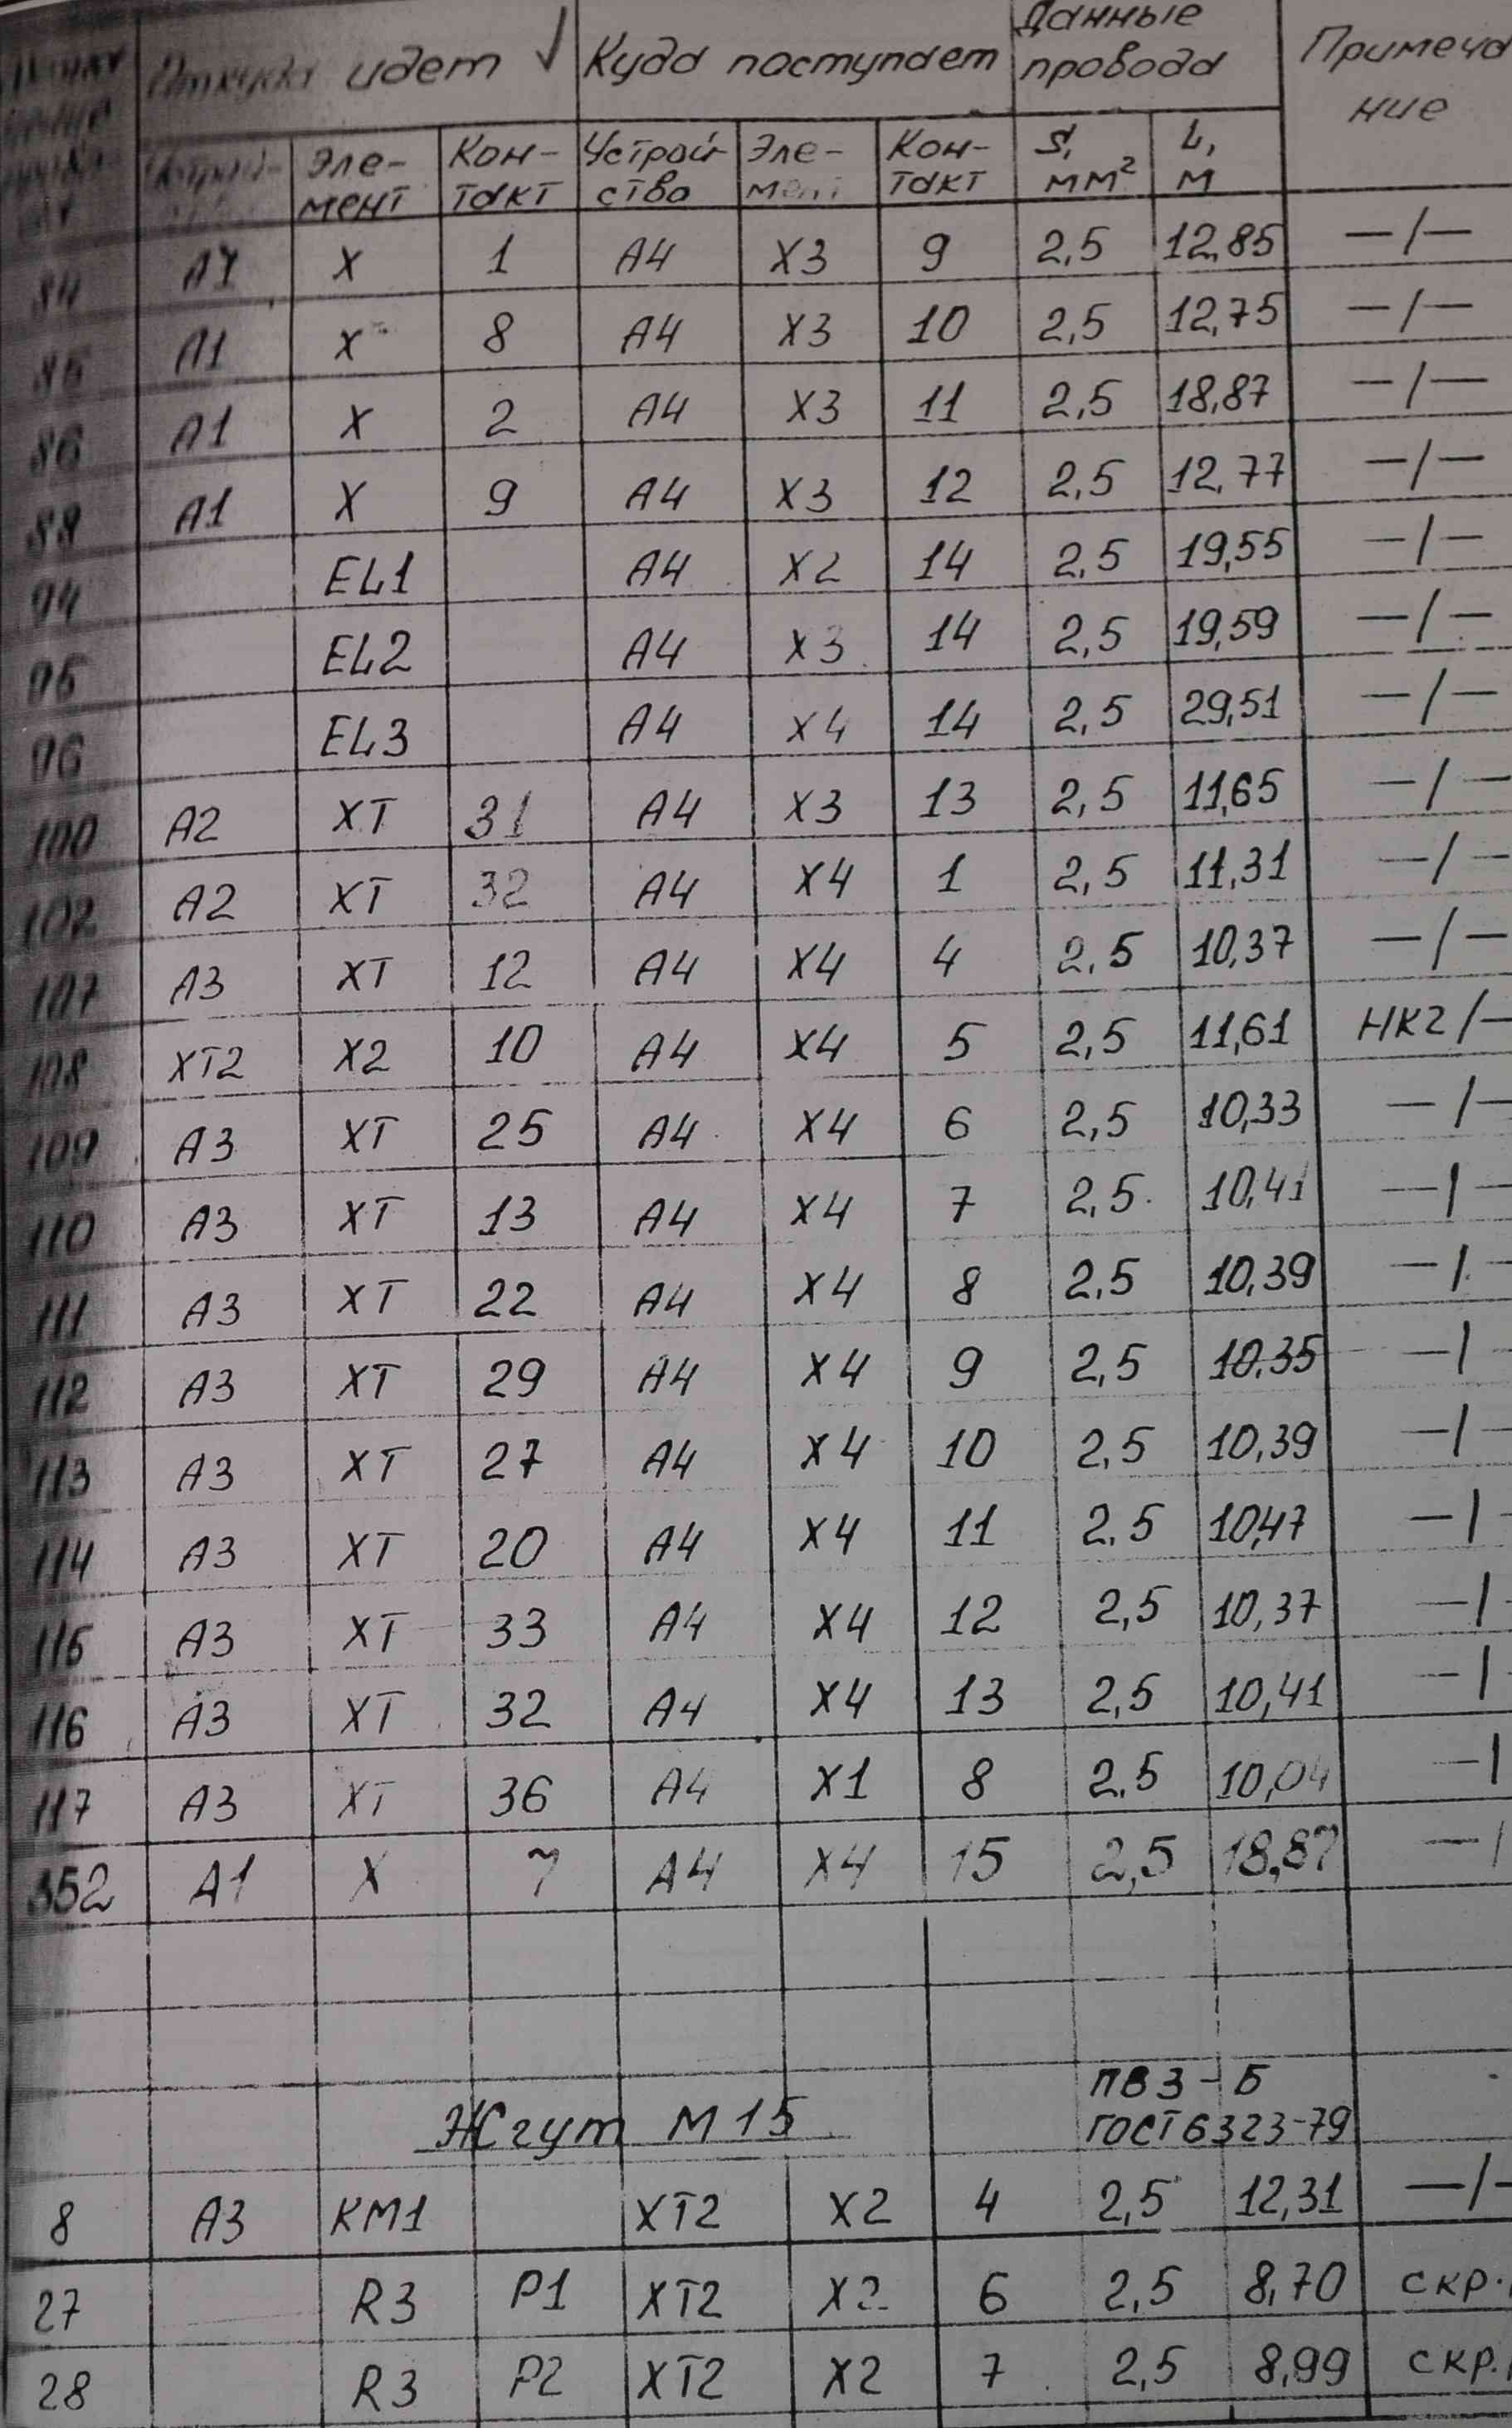 Откуда идет √ Куда поступает Данные провода Примеча
ние
Эле-
мент Кон-
такт Устрой-
ство Эле-
мент Кон-
такт S,
мм² L,
м
84 А1 X 1 А4 X3 9 2,5 12,85 —/—
85 А1 X 8 А4 X3 10 2,5 12,75 —/—
86 А1 X 2 А4 X3 11 2,5 18,87 —/—
88 А1 X 9 А4 X3 12 2,5 12,77 —/—
94 EL1 А4 X2 14 2,5 19,55 —/—
95 EL2 А4 X3 14 2,5 19,59 —/—
96 EL3 А4 X4 14 2,5 29,51 —/—
100 А2 XT 31 А4 X3 13 2,5 11,65 —/—
102 А2 XT 32 А4 X4 1 2,5 11,31 —/—
107 А3 XT 12 А4 X4 4 2,5 10,37 —/—
108 XT2 X2 10 А4 X4 5 2,5 11,61 НК2/—
109 А3 XT 25 А4 X4 6 2,5 10,33 —/—
110 А3 XT 13 А4 X4 7 2,5 10,41 —/—
111 А3 XT 22 А4 X4 8 2,5 10,39 —/—
112 А3 XT 29 А4 X4 9 2,5 10,35 —/
113 А3 XT 27 А4 X4 10 2,5 10,39 —/—
114 А3 XT 20 А4 X4 11 2,5 10,47 —/
115 А3 XT 33 А4 X4 12 2,5 10,37 —/
116 А3 XT 32 А4 X4 13 2,5 10,41 —/
117 А3 XT 36 А4 X1 8 2,5 10,04 —/
352 А1 X 7 А4 X4 15 2,5 18,87 —/
Жгут М15 ПВ3-Б
ГОСТ6323-79
8 А3 КМ1 XT2 X2 4 2,5 12,31 —/—
27 R3 Р1 XT2 X2 6 2,5 8,70 скр.
28 R3 Р2 XT2 X2 7 2,5 8,99 скр.